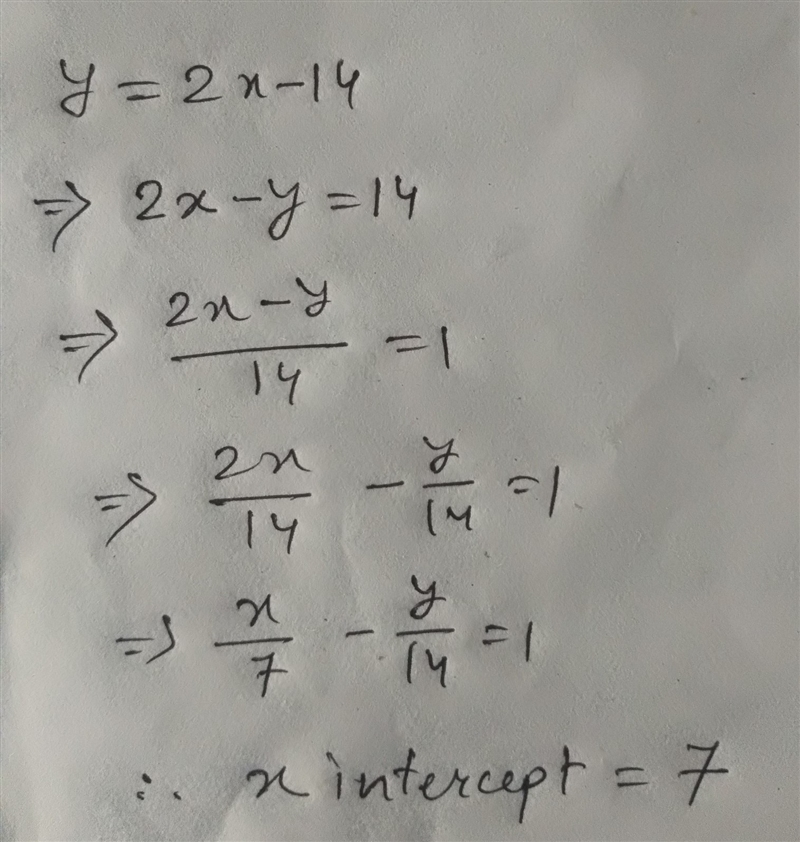 y = 2x-14
⇒ 2x-y=14
⇒ (2x-y)/14 =1
⇒ 2x/14 - y/14 =1
⇒ x/7 - y/14 =1
∴ x intercept = 7